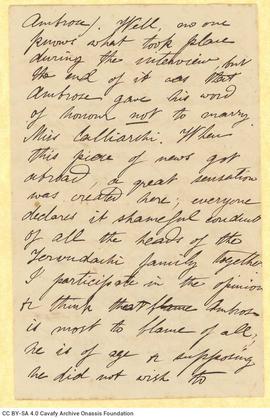 Ambrose). Well, no one
knows what took place
during the interview but
the end of it was that
Ambrose gave his word
of honour not to marry
Miss Calliarchi. When
this piece of news got
abroad, a great sensation
was created here; everyone
declares it shameful conduct
of all the heads of the
family together
I participate in the opinion
& think that blame Ambrose
is most to blame of all;
he is of age & supposing
he did not wish to
CC BY-SA 4.0 Cavafy Archive Onassis Foundation